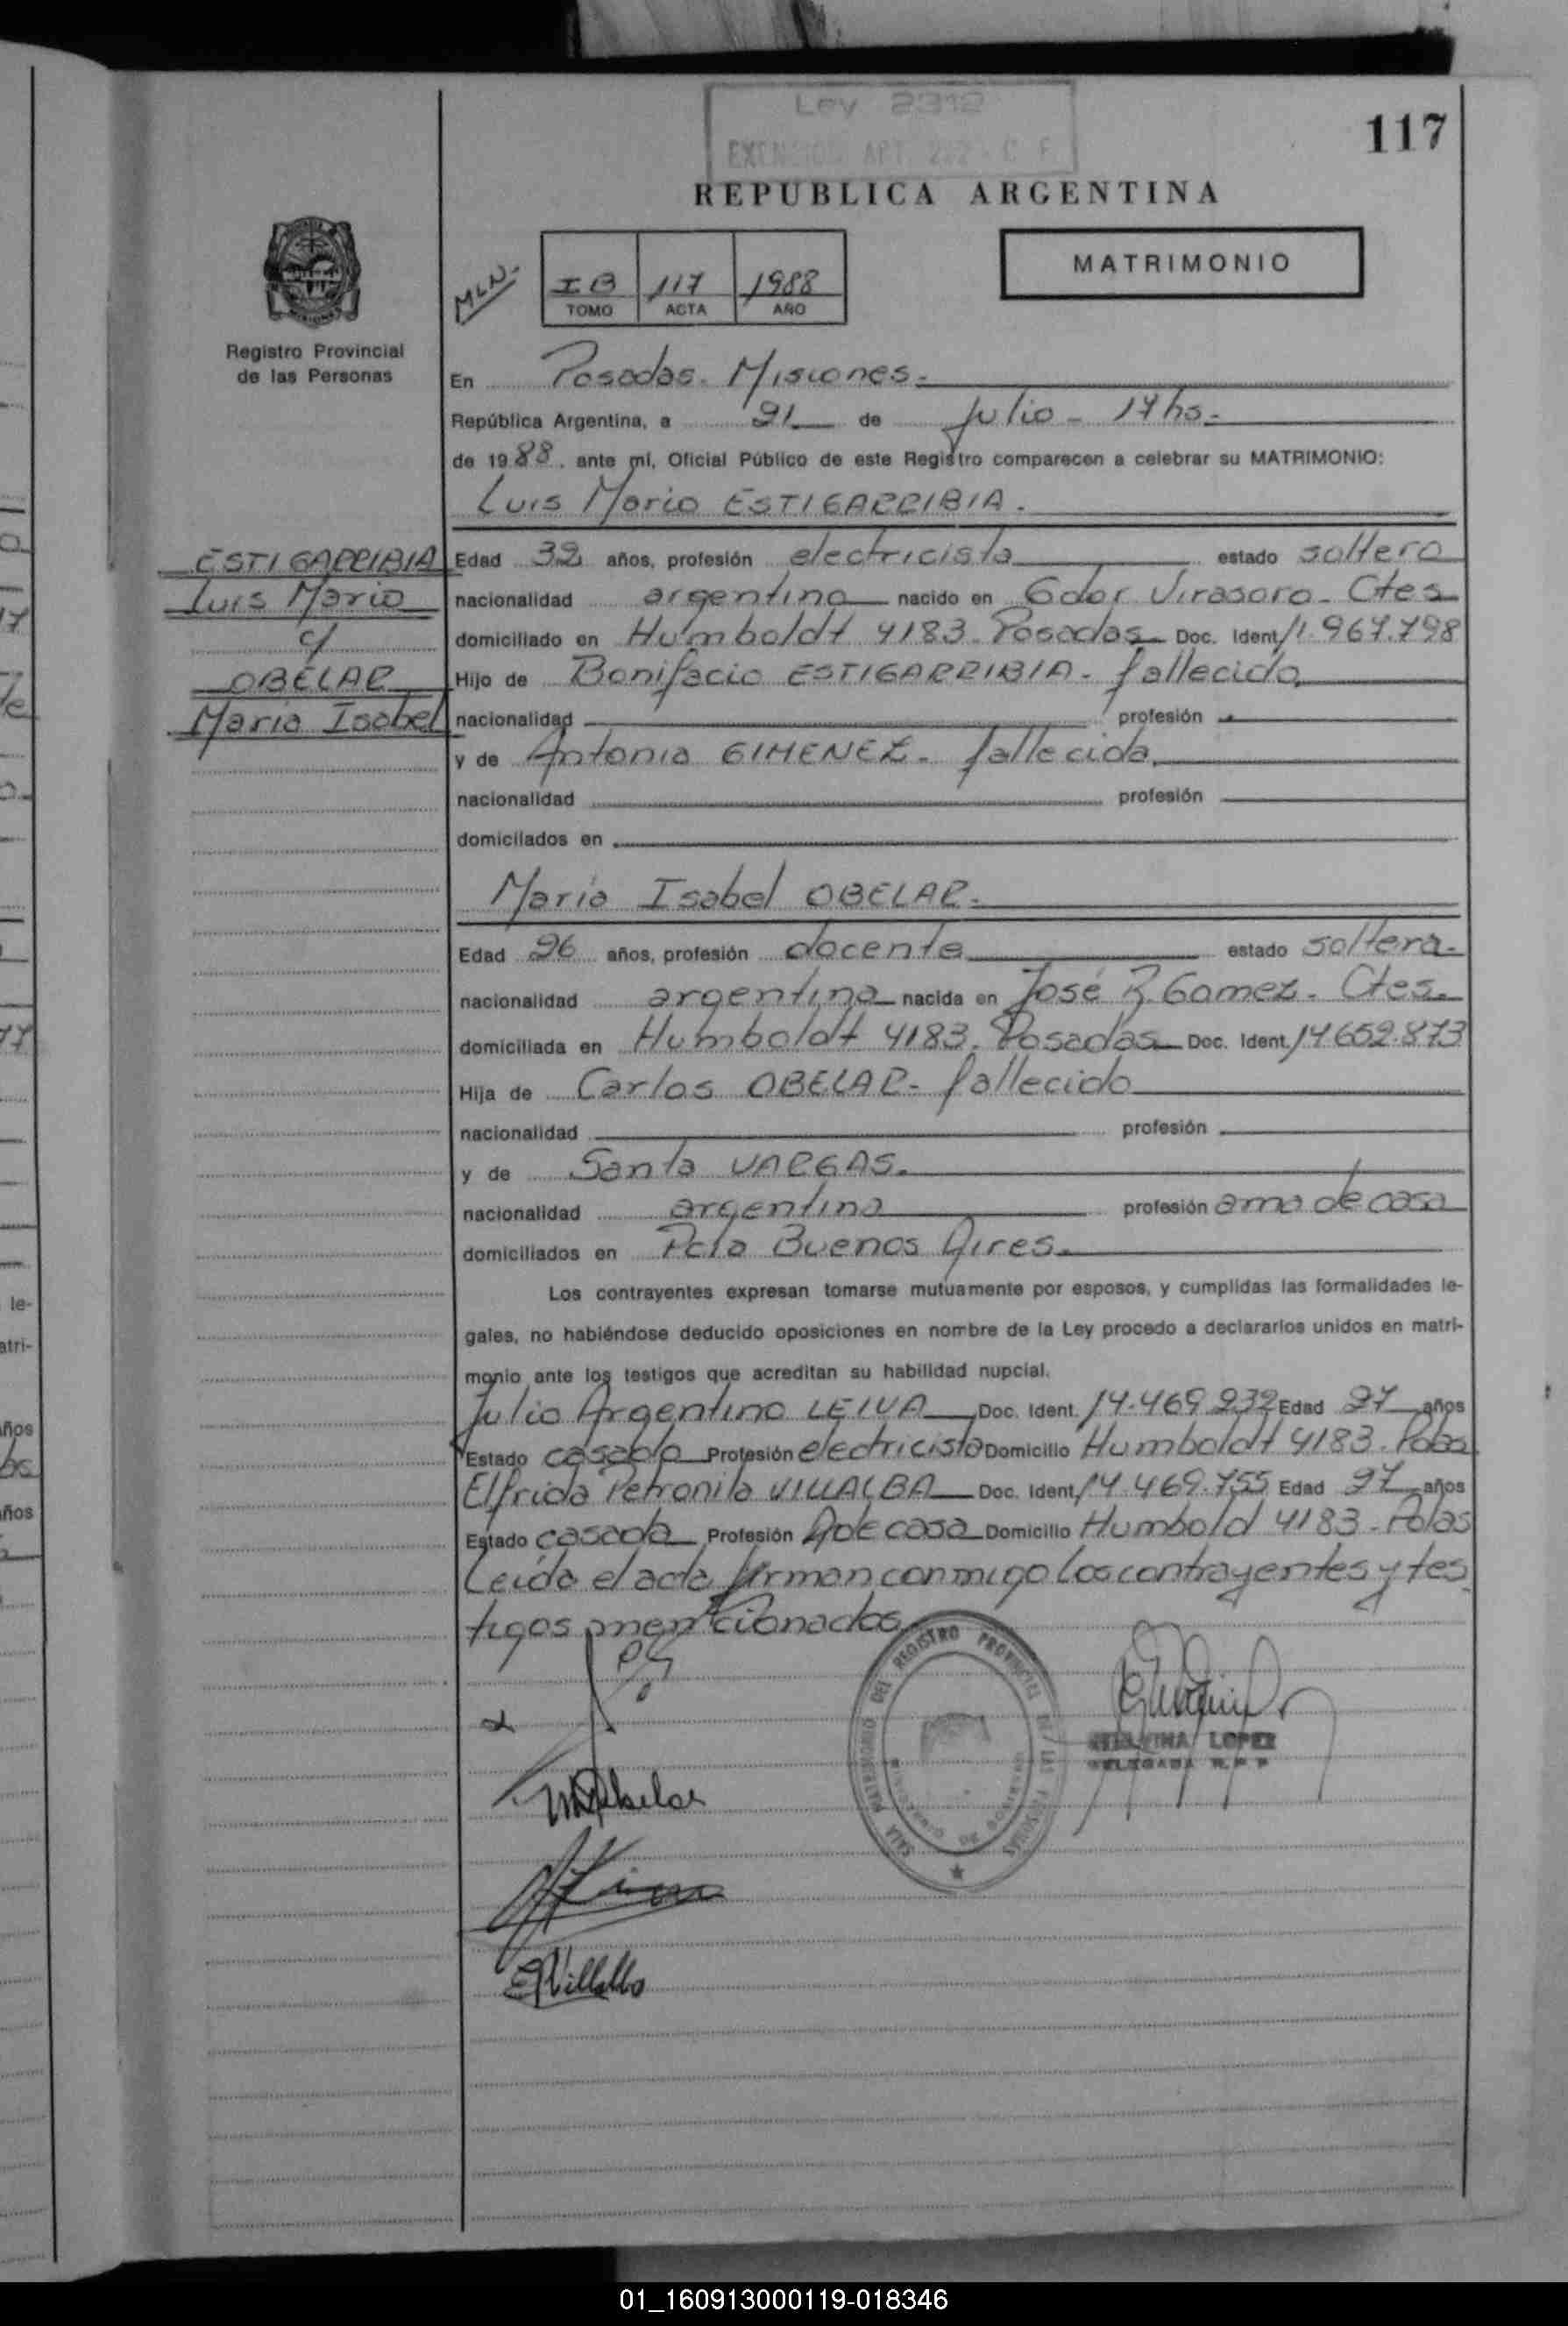 Ley 2312
EXENCION ART. 222 - C F
117
REPUBLICA ARGENTINA
MATRIMONIO
MLN.
I B 117 1988
TOMO ACTA AÑO
Registro Provincial
de las Personas
En Posadas. Misiones.
República Argentina, a 21 de Julio - 17 hs.
de 1988, ante mí, Oficial Público de este Registro comparecen a celebrar su MATRIMONIO:
Luis Mario ESTIGARRIBIA.
ESTIGARRIBIA
Luis Mario
c/
OBELAR
María Isabel
Edad 32 años, profesión electricista estado soltero
nacionalidad argentina nacido en Gdor Virasoro - Ctes
domiciliado en Humboldt 4183. Posadas Doc. Ident. 11.967.798
Hijo de Bonifacio ESTIGARRIBIA - fallecido
nacionalidad profesión
y de Antonia GIMENEZ - fallecida.
nacionalidad profesión
domiciliados en
María Isabel OBELAR.
Edad 26 años, profesión docente estado soltera.
nacionalidad argentina nacida en José R. Gomez. Ctes.
domiciliada en Humboldt 4183. Posadas Doc. Ident. 14652.873
Hija de Carlos OBELAR - fallecido
nacionalidad profesión
y de Santa VARGAS.
nacionalidad argentina profesión ama de casa
domiciliados en Pcia Buenos Aires.
Los contrayentes expresan tomarse mutuamente por esposos, y cumplidas las formalidades le-
gales, no habiéndose deducido oposiciones en nombre de la Ley procedo a declararlos unidos en matri-
monio ante los testigos que acreditan su habilidad nupcial.
Julio Argentino LEIVA Doc. Ident. 14.469.232 Edad 27 años
Estado casado Profesión electricista Domicilio Humboldt 4183. Pdas
Elfrida Petronila VILLALBA Doc. Ident. 14.469.755 Edad 27 años
Estado casada Profesión A de casa Domicilio Humbold 4183 - Pdas
Leída el acta firman conmigo los contrayentes y tes
tigos mencionados
SALA MATRIMONIO DEL REGISTRO PROVINCIAL DE LAS PERSONAS
LOPEZ
DELEGADA R.P.P
MObelar
EPVillalba
01_160913000119-018346